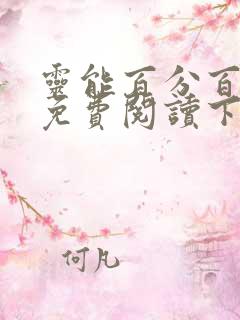 靈能百分百
免費閱讀下
何凡